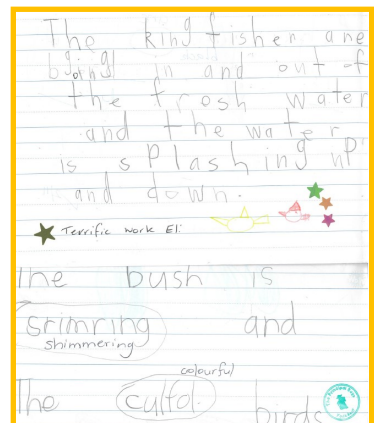 The kingfisher are
going in and out of
the frosh water
and the water
is splashing up
and down.
Terrific work Eli
The bush is
srimring and
shimmering
colourful
The culfol birds